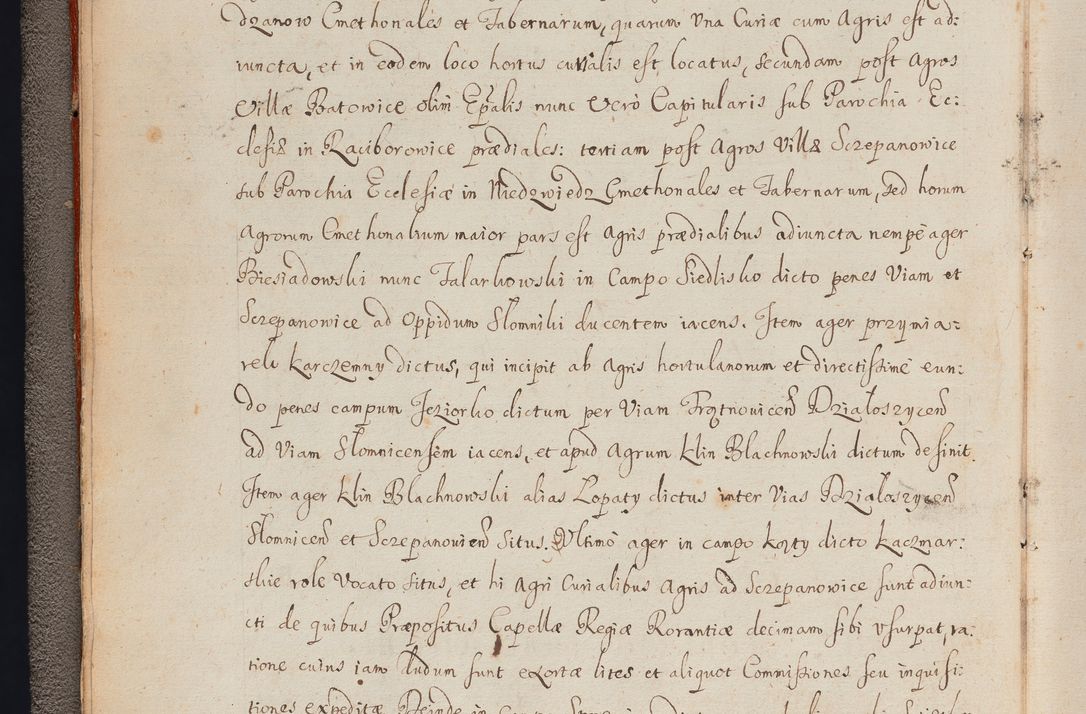 dzanow Cmethonales et Tabernarum, quarum Una Curiæ cum Agris est ad:
iuncta, et in eodem loco hortus curialis est locatus, Secundam post Agros
Villæ Batowice olim Epalis nunc Verò Capitularis sub Parochia Ec:
clesiæ in Raciborowice prædiales: tertiam post Agros Villæ Sczepanowice
sub Parochia Ecclesiæ in Niedzwiedz Cmethonales et Tabernarum, sed horum
Agrorum Cmethonalium maior pars est Agris prædialibus adiuncta nempè ager
Biesiadowski nunc Talarkowski in Campo Siedlisko dicto penes Viam et
Sczepanowice ad Oppidum Słomniki ducentem iacens. Item ager przymia:
rek Karczemny dictus, qui incipit ab Agris hortulanorum et directissimè eun:
do penes campum Jeziorko dictum per Viam Frątnovicen Działoszycen
ad Viam Słomnicensem iacens, et apud Agrum Klin Blachnowski dictum desinit.
Item ager Klin Blachnowski alias Łopaty dictus inter Vias Działoszycen
Słomnicen et Sczepanovien Situs. Ultimò ager in campo Kąty dicto Kaczmar:
skie role Vocato situs, et hi Agri Curialibus Agris ad Sczepanowice sunt adiun:
cti de quibus Præpositus Capellæ Regiæ Rorantiæ decimam sibi Usurpat, ra:
tione cuius iam dudum sunt exortæ lites et aliquot Commissiones seu inquisi:
tiones expeditæ Deinde in